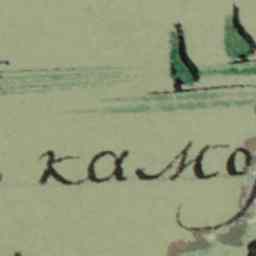 камо